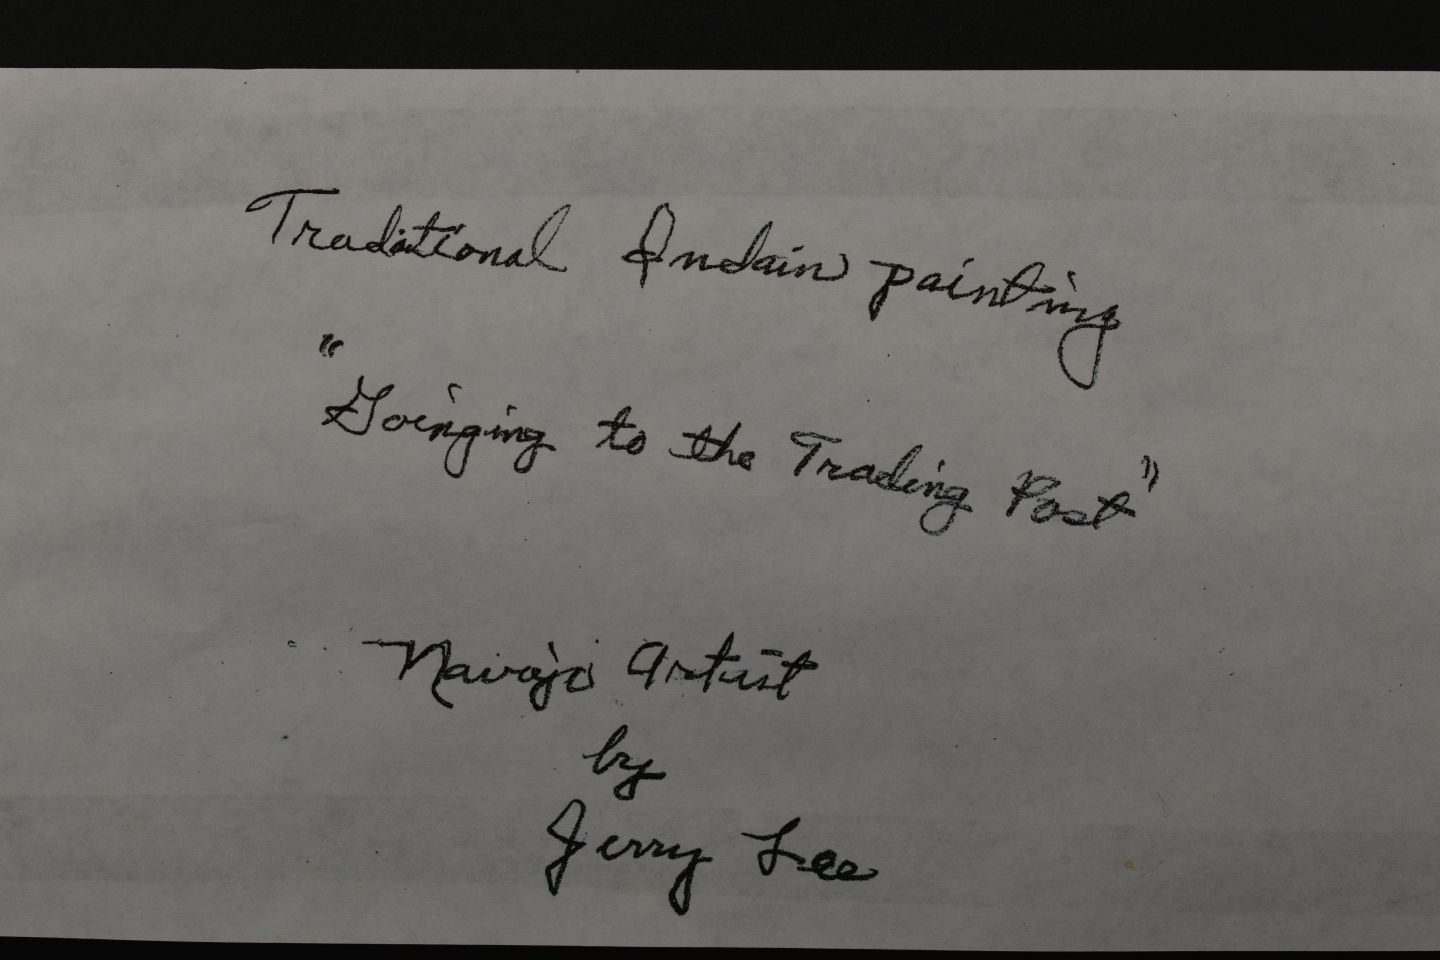 Traditional Indain painting
"Goinging to the Trading Post"
Navajo Artist
by
Jerry Lee